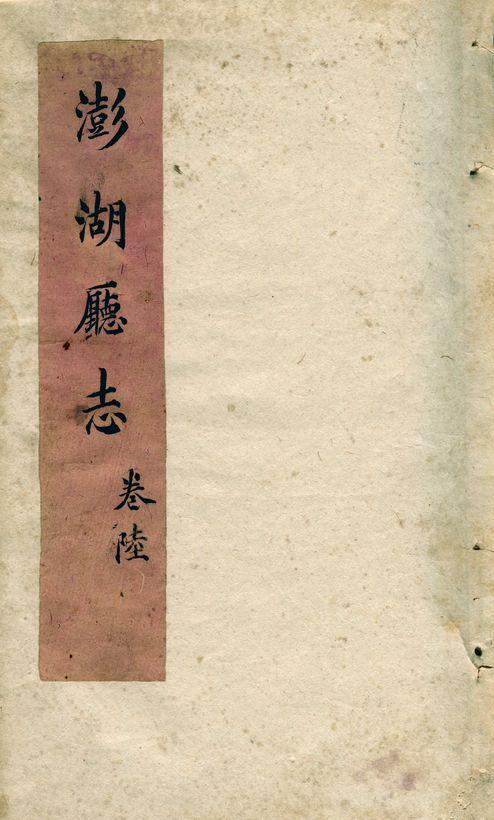 澎湖廳志
卷陸